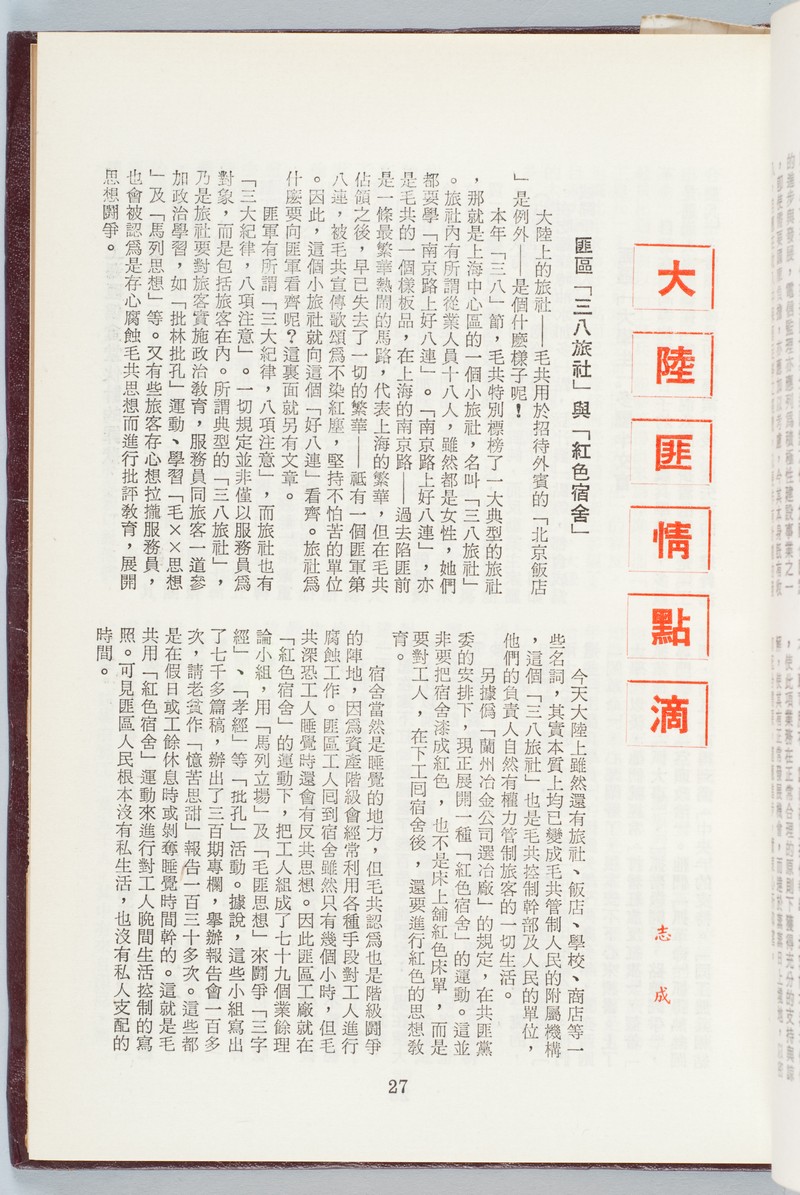 大陸匪情點滴
志成
匪區「三八旅社」與「紅色宿舍」
大陸上的旅社——毛共用於招待外賓的「北京飯店
」是例外——是個什麼樣子呢！
本年「三八」節，毛共特別標榜了一大典型的旅社
，那就是上海中心區的一個小旅社，名叫「三八旅社」
。旅社內有所謂從業人員十八人，雖然都是女性，她們
都要學「南京路上好八連」。「南京路上好八連」，亦
是毛共的一個樣板品，在上海的南京路——過去陷匪前
是一條最繁華熱鬧的馬路，代表上海的繁華，但在毛共
佔領之後，早已失去了一切的繁華——祗有一個匪軍第
八連，被毛共宣傳歌頌爲不染紅塵，堅持不怕苦的單位
。因此，這個小旅社就向這個「好八連」看齊。旅社爲
什麼要向匪軍看齊呢？這裏面就另有文章。
匪軍有所謂「三大紀律，八項注意」，而旅社也有
「三大紀律，八項注意」。一切規定並非僅以服務員爲
對象，而是包括旅客在內。所謂典型的「三八旅社」，
乃是旅社要對旅客實施政治教育，服務員同旅客一道參
加政治學習，如「批林批孔」運動、學習「毛××思想
」及「馬列思想」等。又有些旅客存心想拉攏服務員，
也會被認爲是存心腐蝕毛共思想而進行批評教育，展開
思想鬪爭。
今天大陸上雖然還有旅社、飯店、學校、商店等一
些名詞，其實本質上均已變成毛共管制人民的附屬機構
，這個「三八旅社」也是毛共控制幹部及人民的單位，
他們的負責人自然有權力管制旅客的一切生活。
另據僞「蘭州冶金公司選冶廠」的規定，在共匪黨
委的安排下，現正展開一種「紅色宿舍」的運動。這並
非要把宿舍漆成紅色，也不是床上舖紅色床單，而是
要對工人，在下工囘宿舍後，還要進行紅色的思想教
育。
宿舍當然是睡覺的地方，但毛共認爲也是階級鬪爭
的陣地，因爲資產階級會經常利用各種手段對工人進行
腐蝕工作。匪區工人囘到宿舍雖然只有幾個小時，但毛
共深恐工人睡覺時還會有反共思想。因此匪區工廠就在
「紅色宿舍」的運動下，把工人組成了七十九個業餘理
論小組，用「馬列立場」及「毛匪思想」來鬪爭「三字
經」、「孝經」等「批孔」活動。據說，這些小組寫出
了七千多篇稿，辦出了三百期專欄，擧辦報告會一百多
次，請老貧作「憶苦思甜」報告一百三十多次。這些都
是在假日或工餘休息時或剝奪睡覺時間幹的。這就是毛
共用「紅色宿舍」運動來進行對工人晚間生活控制的寫
照。可見匪區人民根本沒有私生活，也沒有私人支配的
時間。
27